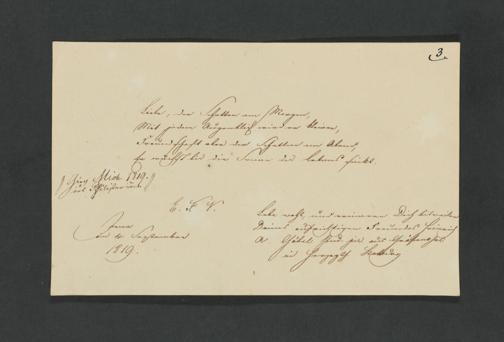 3.
Liebe, der Schatten am Morgen,
Mit jedem Augenblick wird er kleiner,
Freundschaft aber der Schatten am Abend,
Er wächst bis die Sonne des Lebens sinkt.
Mich. 1819.
E. F. V.
Jena
den 4. September
1819.
Lebe wohl, und erinnere Dich bisweilen
Deines aufrichtigen Freundes Heinrich
Göbel stud. jur. aus
im